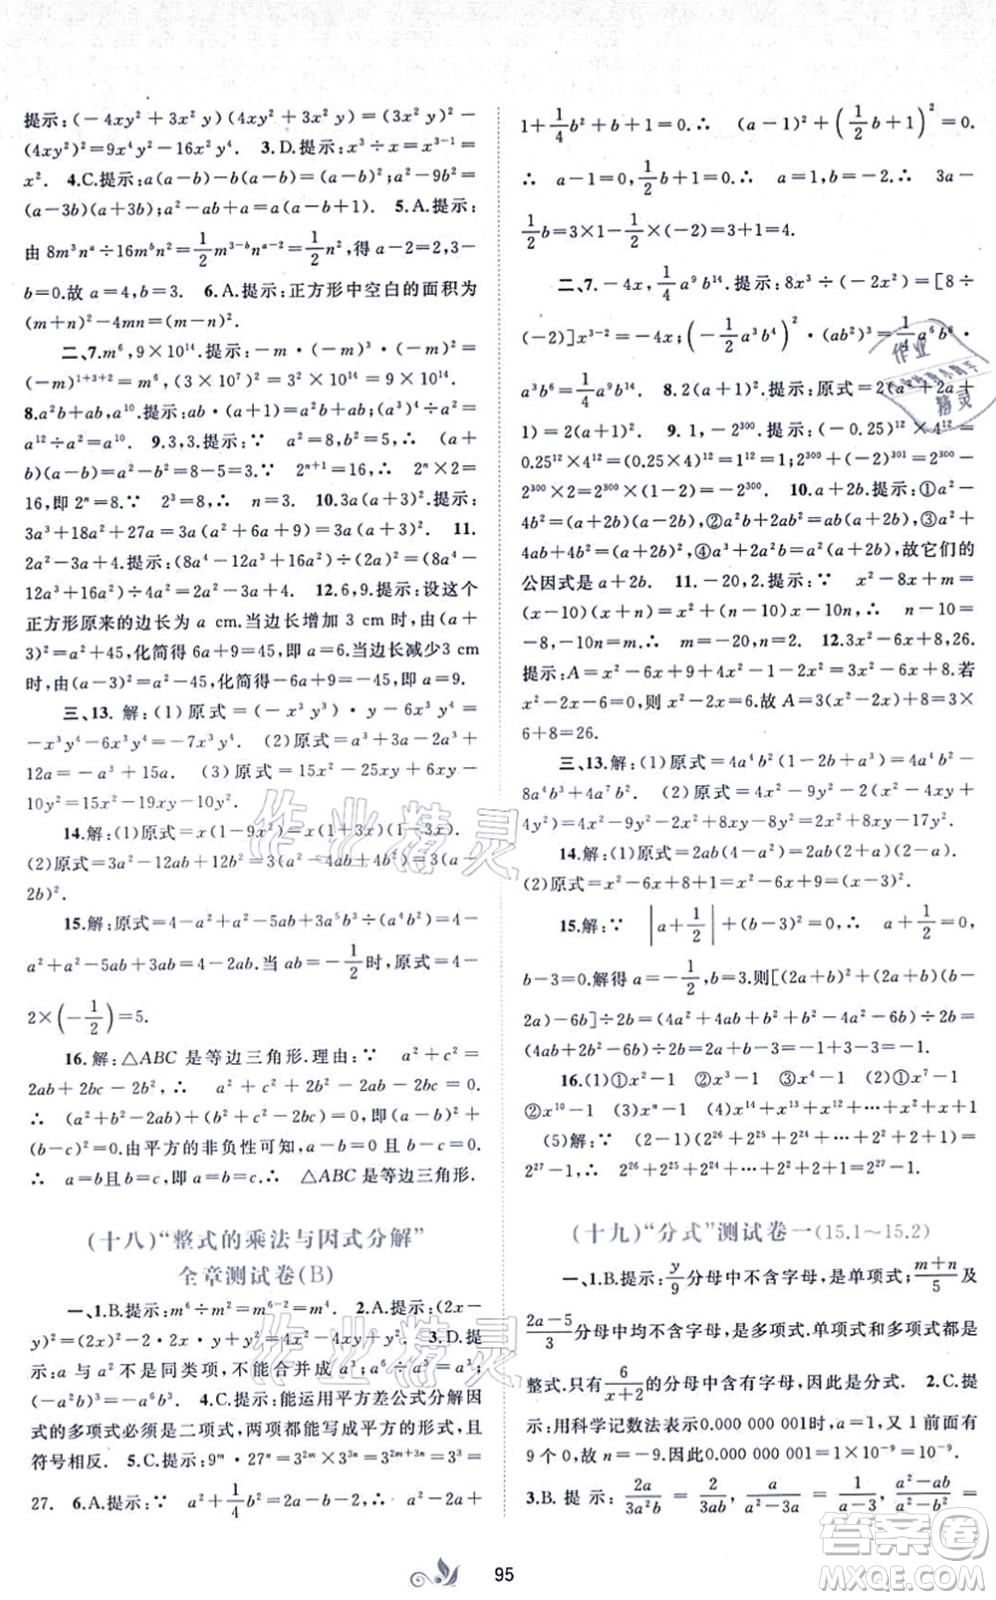 提示:(−4xy²+3x²y)(4xy²+3x²y)=(3x²y)²−
(4xy²)²=9x⁴y²−16x²y⁴. 3.D.提示:x³÷x=x³⁻¹=
x². 4.C.提示:a(a−b)−b(a−b)=(a−b)²;a²−2ab−3b²=
(a−3b)(a+3b);a²−ab+a=a(a−b+1). 5.A.提示:
由8m³nᵃ÷16mᵇn²=1/2 m³⁻ᵇnᵃ⁻²=1/2 n²,得a−2=2,3−
b=0.故a=4,b=3. 6.A.提示:正方形中空白的面积为
(m+n)²−4mn=(m−n)².
二、7.m⁶,9×10¹⁴.提示:−m·(−m)²·(−m)³=
(−m)¹⁺³⁺²=m⁶,(3×10⁷)²=3²×(10⁷)²=9×10¹⁴.
8.a²b+ab,a¹⁰.提示:ab·(a+1)=a²b+ab,(a³)⁴÷a²=
a¹²÷a²=a¹⁰. 9.3,3.提示:∵ a²=8,b²=5,∴ (a+
b)(a−b)=a²−b²=8−5=3. ∵ 2ⁿ⁺¹=16,∴ 2ⁿ×2=
16,即2ⁿ=8.∵ 2³=8,∴ n=3. 10.3a(a+3)².提示:
3a³+18a²+27a=3a(a²+6a+9)=3a(a+3)². 11.
2a²−3a+4.提示:(8a⁴−12a³+16a²)÷(2a)²=(8a⁴−
12a³+16a²)÷4a²=2a²−3a+4. 12.6,9.提示:设这个
正方形原来的边长为a cm.当边长增加3 cm时,由(a+
3)²=a²+45,化简得6a+9=45,所以a=6.当边长减少3 cm
时,由(a−3)²=a²−45,化简得−6a+9=−45,所以a=9.
三、13.解:(1)原式=(−x³y³)·y−6x³y⁴=
−x³y⁴−6x³y⁴=−7x³y⁴. (2)原式=a²+3a−2a²+
12a=−a²+15a. (3)原式=15x²−25xy+6xy−
10y²=15x²−19xy−10y².
14.解:(1)原式=x(1−9x²)=x(1+3x)(1−3x).
(2)原式=3a²−12ab+12b²=3(a²−4ab+4b²)=3(a−
2b)².
15.解:原式=4−a²+a²−5ab+3a⁵b³÷(a⁴b²)=4−
a²+a²−5ab+3ab=4−2ab.当ab=−1/2时,原式=4−
2×(−1/2)=5.
16.解:△ABC是等边三角形.理由:∵ a²+c²=
2ab+2bc−2b²,∴ a²+c²+2b²−2ab−2bc=0.
∴ (a²+b²−2ab)+(b²+c²−2bc)=0,即(a−b)²+
(b−c)²=0.由平方的非负性可知a−b=0且b−c=0.
∴ a=b且b=c.∴ a=b=c.∴ △ABC是等边三角形.
(十八)“整式的乘法与因式分解”
全章测试卷(B)
一、1.B.提示:m⁶÷m²=m⁶⁻²=m⁴. 2.A.提示:(2x−
y)²=(2x)²−2·2x·y+y²=4x²−4xy+y². 3.D.提
示:a与a²不是同类项,不能合并成a³;a⁶÷a³=a³;
(−a²b)³=−a⁶b³. 4.C.提示:能运用平方差公式分解因
式的多项式必须是二项式,两项都能写成平方的形式,且
符号相反. 5.C.提示:9ᵐ·27ⁿ=3²ᵐ×3³ⁿ=3²ᵐ⁺³ⁿ=3³=
27. 6.A.提示:∵ a²+1/4 b²=2a−b−2,∴ a²−2a+
1+1/4 b²+b+1=0.∴ (a−1)²+(1/2 b+1)²=0.
∴ a−1=0,1/2 b+1=0.∴ a=1,b=−2.∴ 3a−
1/2 b=3×1−1/2×(−2)=3+1=4.
二、7.−4x,1/4 a⁹b¹⁴.提示:8x³÷(−2x²)=[8÷
(−2)]x³⁻²=−4x;(−1/2 a³b⁴)²·(ab²)³=1/4 a⁶b⁸·
a³b⁶=1/4 a⁹b¹⁴. 8.2(a+1)².提示:原式=2(a²+2a+
1)=2(a+1)². 9.1,−2³⁰⁰.提示:(−0.25)¹²×4¹²=
0.25¹²×4¹²=(0.25×4)¹²=1¹²=1;2³⁰⁰+(−2)³⁰¹=2³⁰⁰−
2³⁰⁰×2=2³⁰⁰×(1−2)=−2³⁰⁰. 10.a+2b.提示:①a²−
4b²=(a+2b)(a−2b),②a²b+2ab²=ab(a+2b),③a²+
4ab+4b²=(a+2b)²,④a³+2a²b=a²(a+2b),故它们的
公因式是a+2b. 11.−20,2.提示:∵ x²−8x+m=
(x−10)(x+n)=x²+(n−10)x−10n,∴ n−10=
−8,−10n=m.∴ m=−20,n=2. 12.3x²−6x+8,26.
提示:A=x²−6x+9+2x²+x−1−x=3x²−6x+8.若
x²−2x−6=0,则x²−2x=6.故A=3(x²−2x)+8=3×
6+8=26.
三、13.解:(1)原式=4a⁴b²(1−2)=−4a⁴b².
(2)原式=8a⁶b³+a⁶b³=9a⁶b³. (3)原式=x²−4y²−(x²+4xy+
4y²)=x²−4y²−x²−4xy−4y²+9y²−
14.解:(1)原式=2ab(4−a²)=2ab(2+a)(2−a).
(2)原式=x²−6x+9=(x−3)².
15.解:∵ |a+1/2|+(b−3)²=0,∴ a+1/2=0,
b−3=0.解得a=−1/2,b=3.则[(2a+b)²+(2a+b)(b−
2a)−6b]÷2b=(4a²+4ab+b²+b²−4a²−6b)÷2b=
(4ab+2b²−6b)÷2b=2a+b−3=−1+3−3=−1.
16.(1)①x²−1 ②x³−1 ③x⁴−1 (2)①x⁷−1
②x¹⁰−1 (3)xⁿ−1 (4)x¹⁴+x¹³+x¹²+…+x²+x+1
(5)解:∵ (2−1)(2²⁶+2²⁵+2²⁴+…+2²+2+1)=
2²⁷−1,∴ 2²⁶+2²⁵+2²⁴+…+2²+2+1=2²⁷−1.
(十九)“分式”测试卷一(15.1~15.2)
一、1.B.提示:y/9分母中不含字母,是单项式;(m+n)/5及
(2a−5)/3分母中均不含字母,是多项式.单项式和多项式都是
整式.只有6/(x+2)的分母中含有字母,所以是分式. 2.C.提
示:用科学记数法表示0.000 000 001时,a=1,又1前面有
9个0,故n=−9.因此0.000 000 001=1×10⁻⁹=10⁻⁹.
3.B.提示:2a/3a²b=2/3ab,a/(a²−3a)=1/(a−3),(a²−ab)/(a²−b²)=
95
作业精灵
作业精灵
答案圈
MXQE.COM